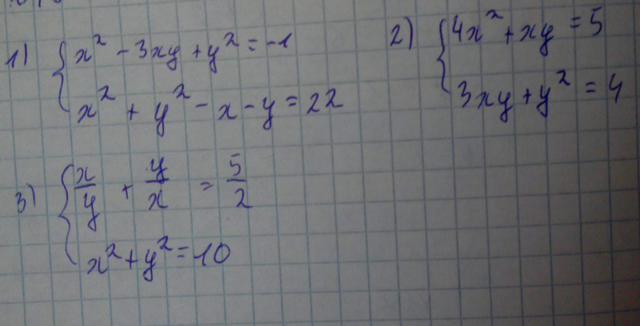 1) { x² - 3xy + y² = -1
x² + y² - x - y = 22
2) { 4x² + xy = 5
3xy + y² = 4
3) { x/y + y/x = 5/2
x² + y² = 10